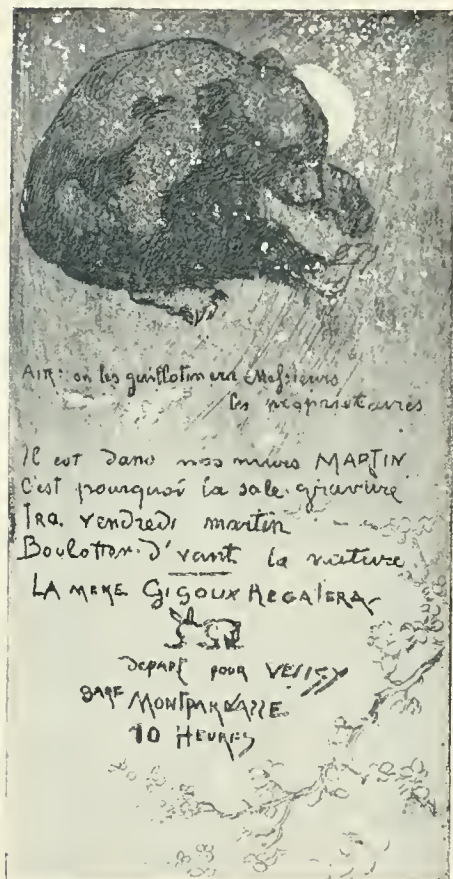 AIR: on les guillotinera Messieurs
les propriétaires
Il est dans nos murs MARTIN
C'est pourquoi la sale gravure
IRA vendredi martin
Boulotter d'vant la nature
LA MERE GIGOUX REGALERA
DEPART POUR VELIZY
GARE MONTPARNASSE
10 HEURES